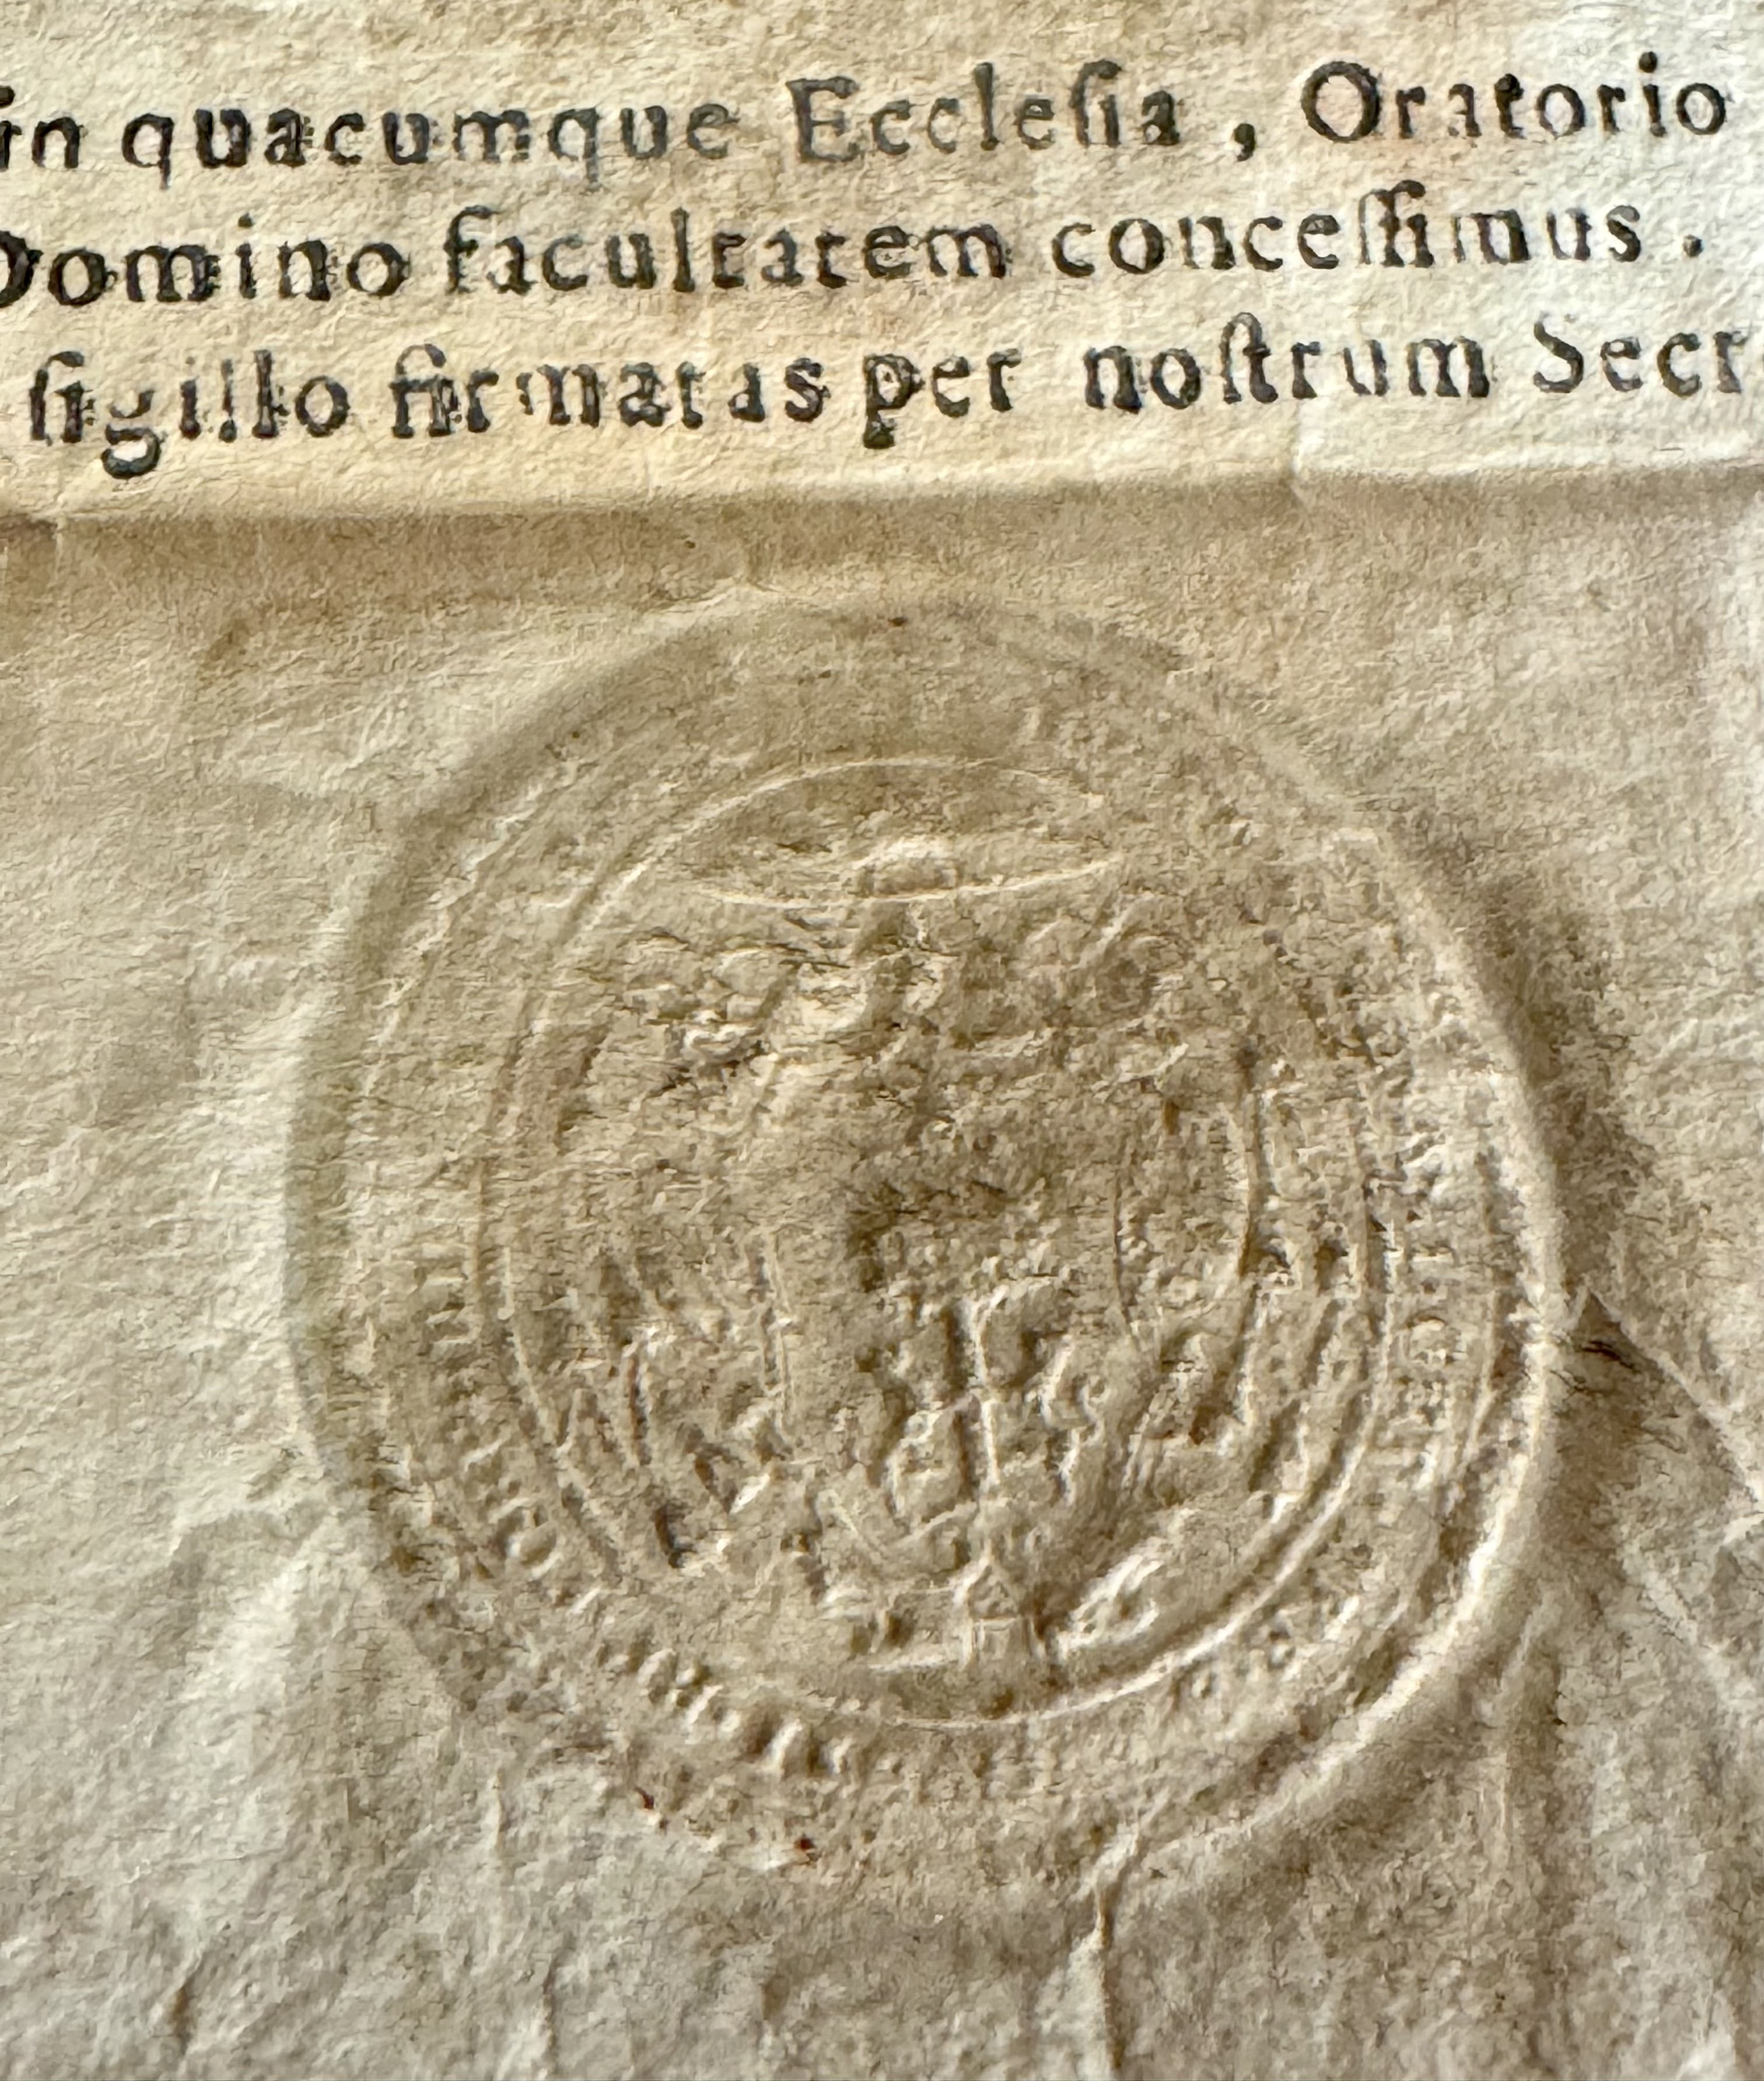 in quacumque Eccleſia , Oratorio
Domino facultatem conceſſimus .
ſigillo firmatas per noſtrum Secr